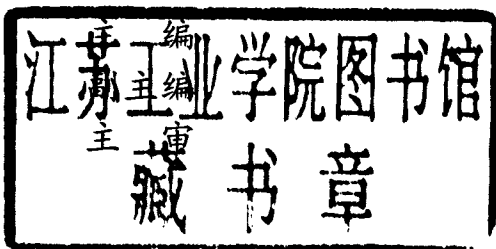 江苏工业学院图书馆
藏书章
主编
副主编
主审